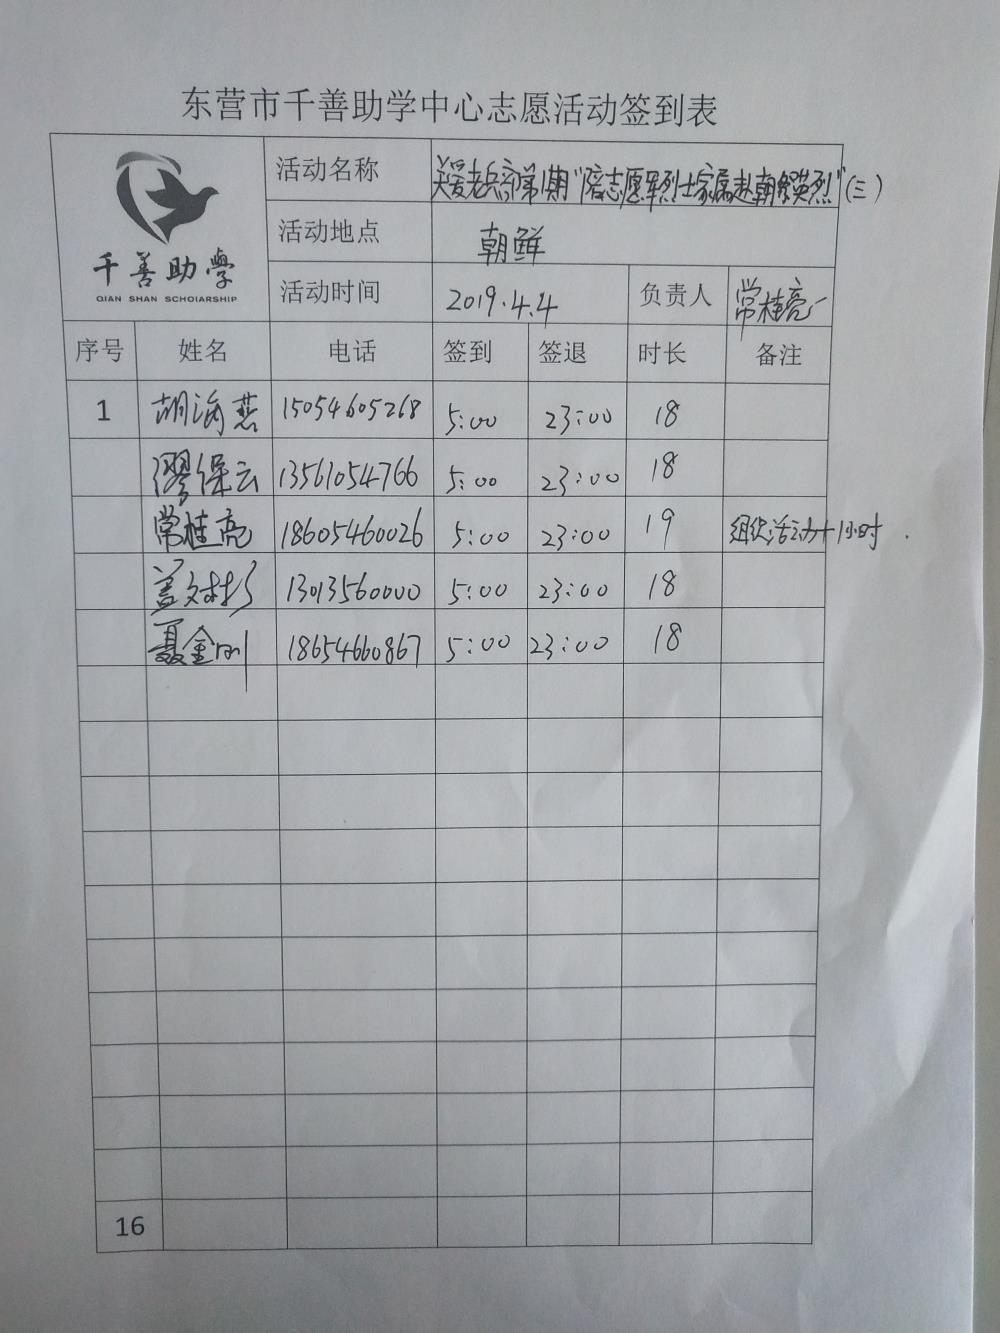 东营市千善助学中心志愿活动签到表
千善助學
QIAN SHAN SCHOIARSHIP
活动名称 关爱老兵部第1期“陪志愿军烈士家属赴朝祭英烈”(三)
活动地点 朝鲜
活动时间 2019.4.4 负责人 常桂亮
序号 姓名 电话 签到 签退 时长 备注
1 胡海燕 15054605268 5:00 23:00 18
缪保云 13561054766 5:00 23:00 18
常桂亮 18605460026 5:00 23:00 19 组织活动+1小时.
盖文彬 13013560000 5:00 23:00 18
聂金刚 18654660867 5:00 23:00 18
16